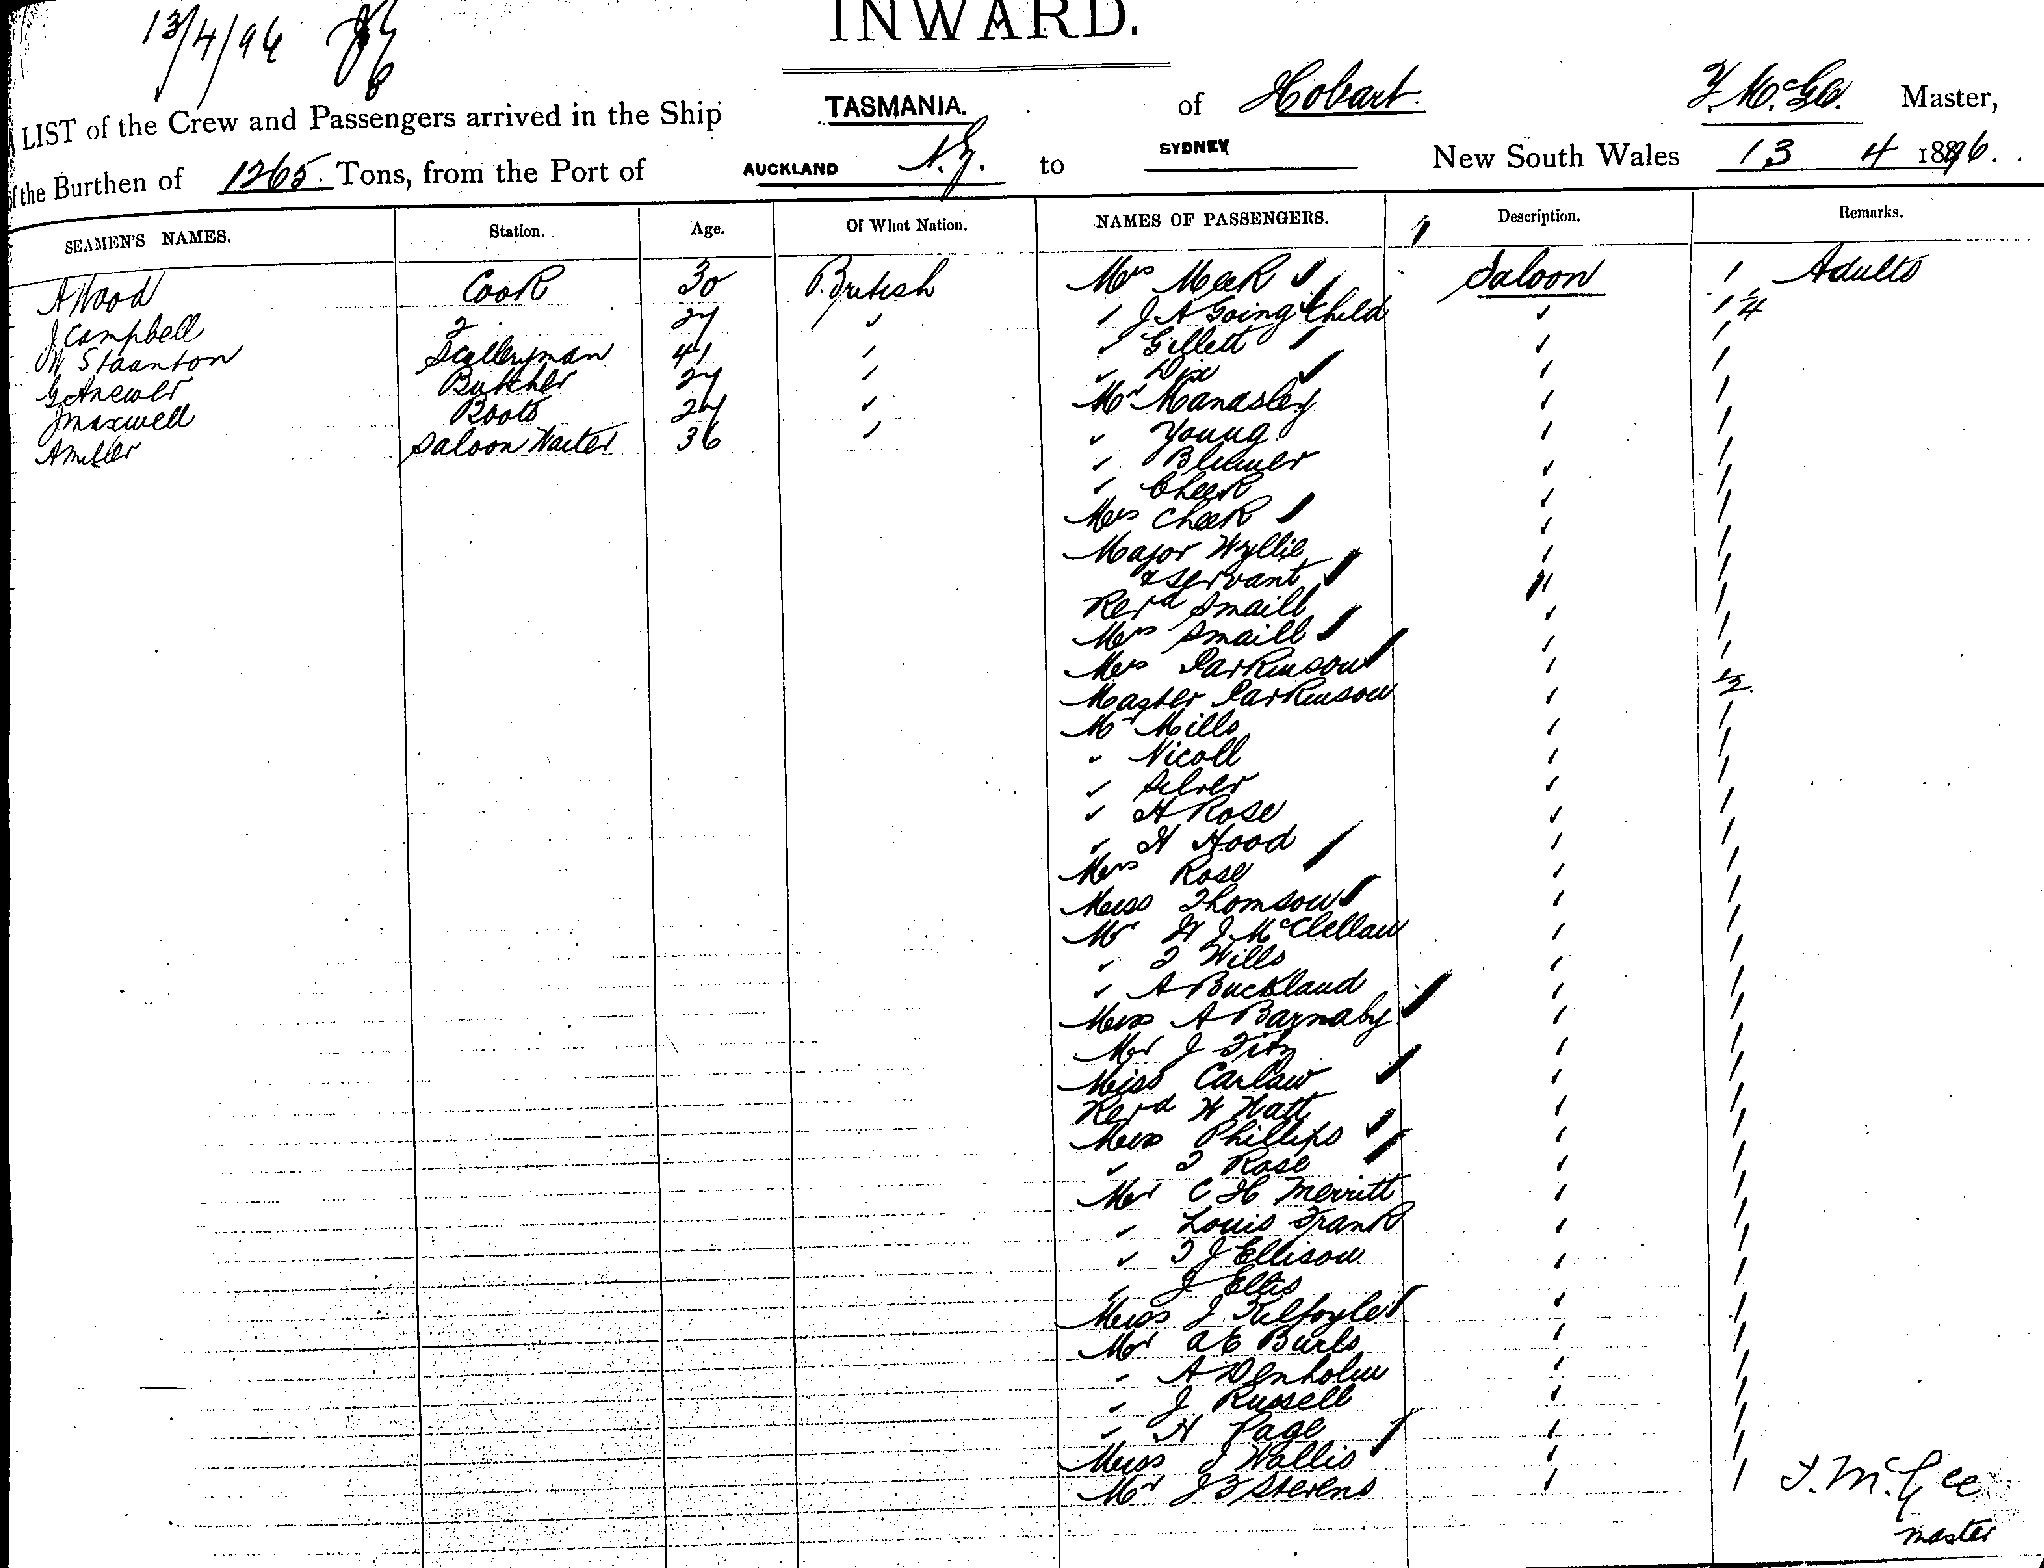 13/4/96
INWARD.
LIST of the Crew and Passengers arrived in the Ship TASMANIA. of Hobart T. McGee. Master,
of the Burthen of 1265 Tons, from the Port of AUCKLAND N.Z. to SYDNEY New South Wales 13 4 1896.
SEAMEN'S NAMES. Station. Age. Of What Nation. NAMES OF PASSENGERS. Description. Remarks.
A Wood Cook 30 British Mrs Meek Saloon 1 Adults
J Campbell 2 27 " " J A Going & Child " 1 1/4
W Staanton Sculleryman 41 " " Gillett " 1
G Anewer Butcher 27 " " Dix " 1
J Maxwell Boots 27 " Mr Manasley " 1
A Miller Saloon Waiter 36 " " Young " 1
" Blumer " 1
" Cheek " 1
Mrs Cheek " 1
Major Wyllie " 1
& Servant " 1
Revd Smaill " 1
Mrs Smaill " 1
Mrs Parkinson " 1
Master Parkinson " 1/2
Mr Mills " 1
" Nicoll " 1
" Silver " 1
" H Rose " 1
" H Hood " 1
Mrs Rose " 1
Miss Thomson " 1
Mr W J McClellan " 1
" T Wills " 1
" A Buckland " 1
Miss A Barnaby " 1
Mr J " 1
Miss Carlaw " 1
Revd W Watt " 1
Miss Phillips " 1
" T Rose " 1
Mr C H Merritt " 1
" Louis Frank " 1
" T J Ellison " 1
" J Ellis " 1
Miss J Kilfoyle " 1
Mr A E Burls " 1
" A Denholm " 1
" J Russell " 1
" H Page " 1
Miss J Wallis " 1
Mr J T Stevens " 1 T. McGee
master